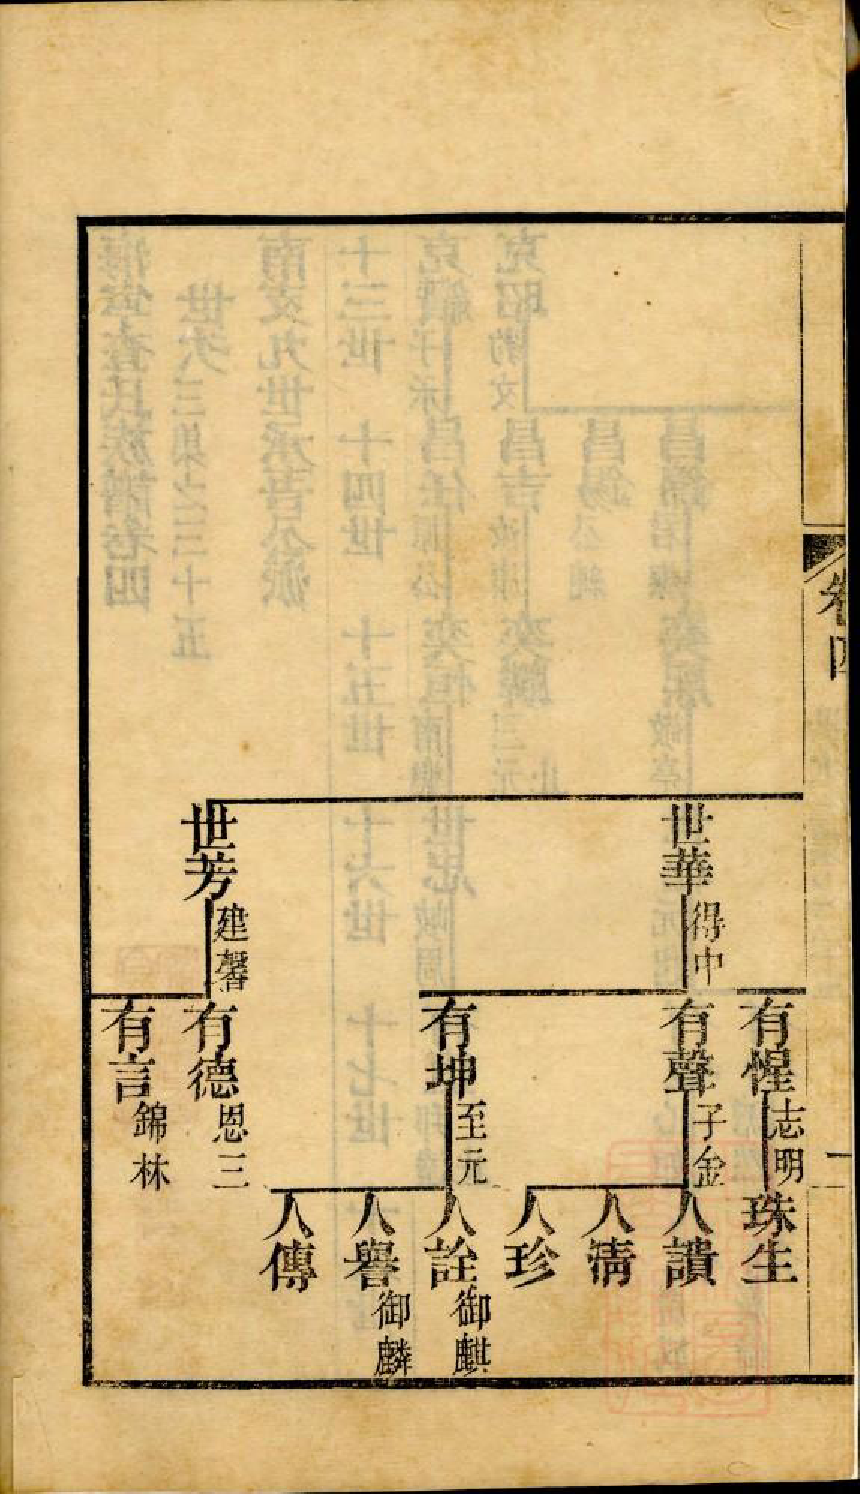 卷四
一
有惺 志明 珠生
世華 得中 有聲 子金 人讀
人清
人珍
有坤 至元 人詮 御麒
人譽 御麟
人傳
世芳 建馨 有德 恩三
有言 錦林